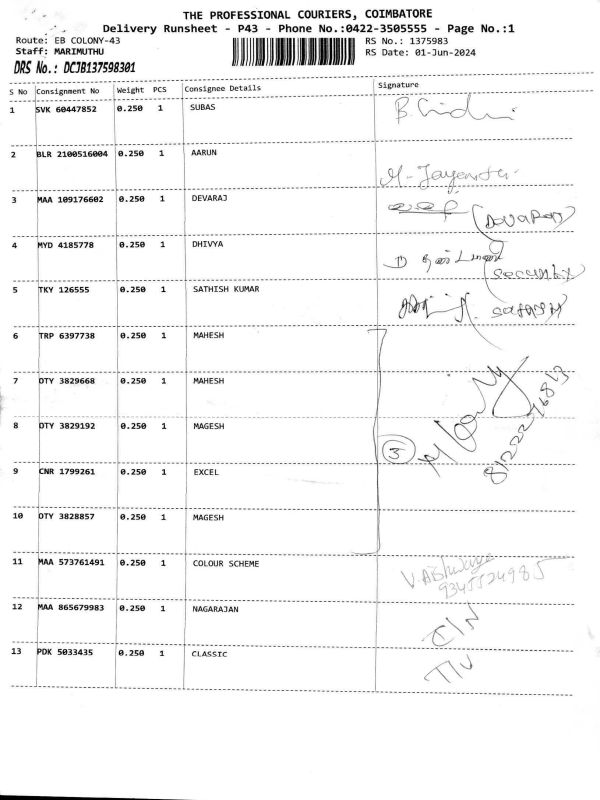 THE PROFESSIONAL COURIERS, COIMBATORE
Delivery Runsheet - P43 - Phone No.:0422-3505555 - Page No.:1
Route: EB COLONY-43 RS No.: 1375983
Staff: MARIMUTHU RS Date: 01-Jun-2024
DRS No.: DCJB137598301
S No Consignment No Weight PCS Consignee Details Signature
1 SVK 60447852 0.250 1 SUBAS
2 BLR 2100516004 0.250 1 AARUN
3 MAA 109176602 0.250 1 DEVARAJ
4 MYD 4185778 0.250 1 DHIVYA
5 TKY 126555 0.250 1 SATHISH KUMAR
6 TRP 6397738 0.250 1 MAHESH
7 OTY 3829668 0.250 1 MAHESH
8 OTY 3829192 0.250 1 MAGESH
9 CNR 1799261 0.250 1 EXCEL
10 OTY 3828857 0.250 1 MAGESH
11 MAA 573761491 0.250 1 COLOUR SCHEME
9345524985
12 MAA 865679983 0.250 1 NAGARAJAN
13 PDK 5033435 0.250 1 CLASSIC